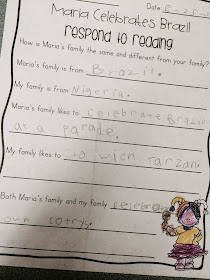 Date
Maria Celebrates Brazil
respond to reading
How is Maria's family the same and different from your family?
Maria's family is from Brazil.
My family is from Nigeria.
Maria's family likes to celebrate Brazil
at a parade.
My family likes to wich Tarzan.
Both Maria's family and my family celebrate
own cotry.